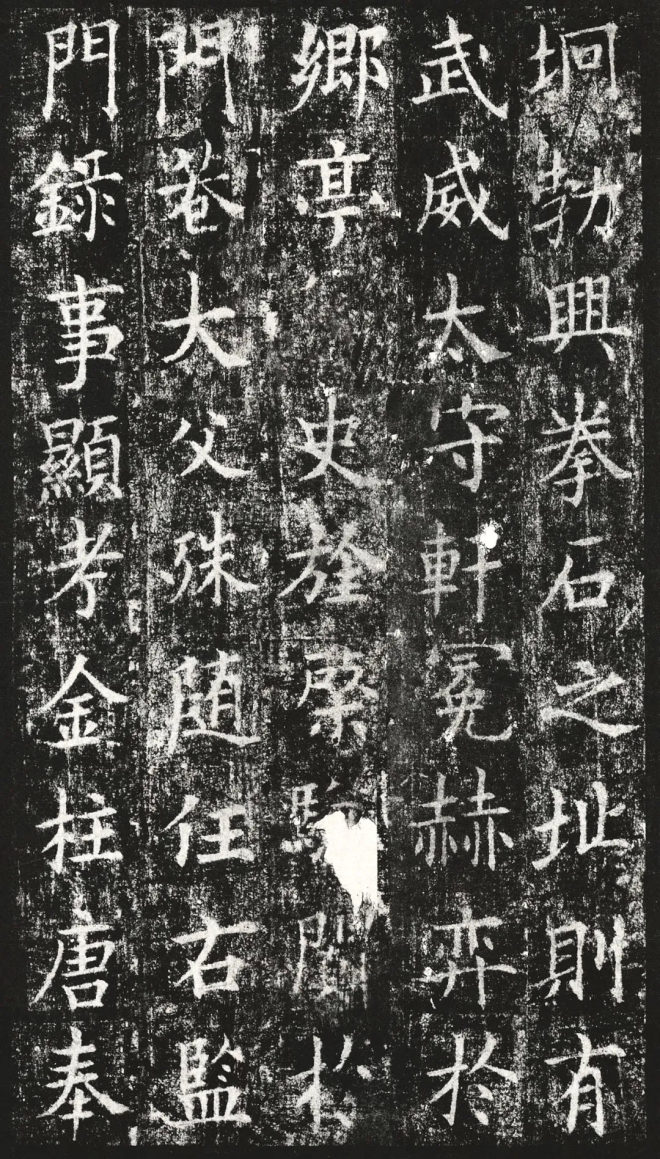 坰勃興拳石之址則有
武威太守軒冕赫弈於
鄉亭史旌棨闐於
門巷大父殊随任右監
門錄事顯考金柱唐奉